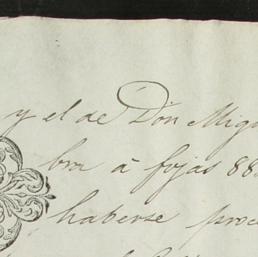 y el de Don Migu
bra á fojas 88
haberse proce